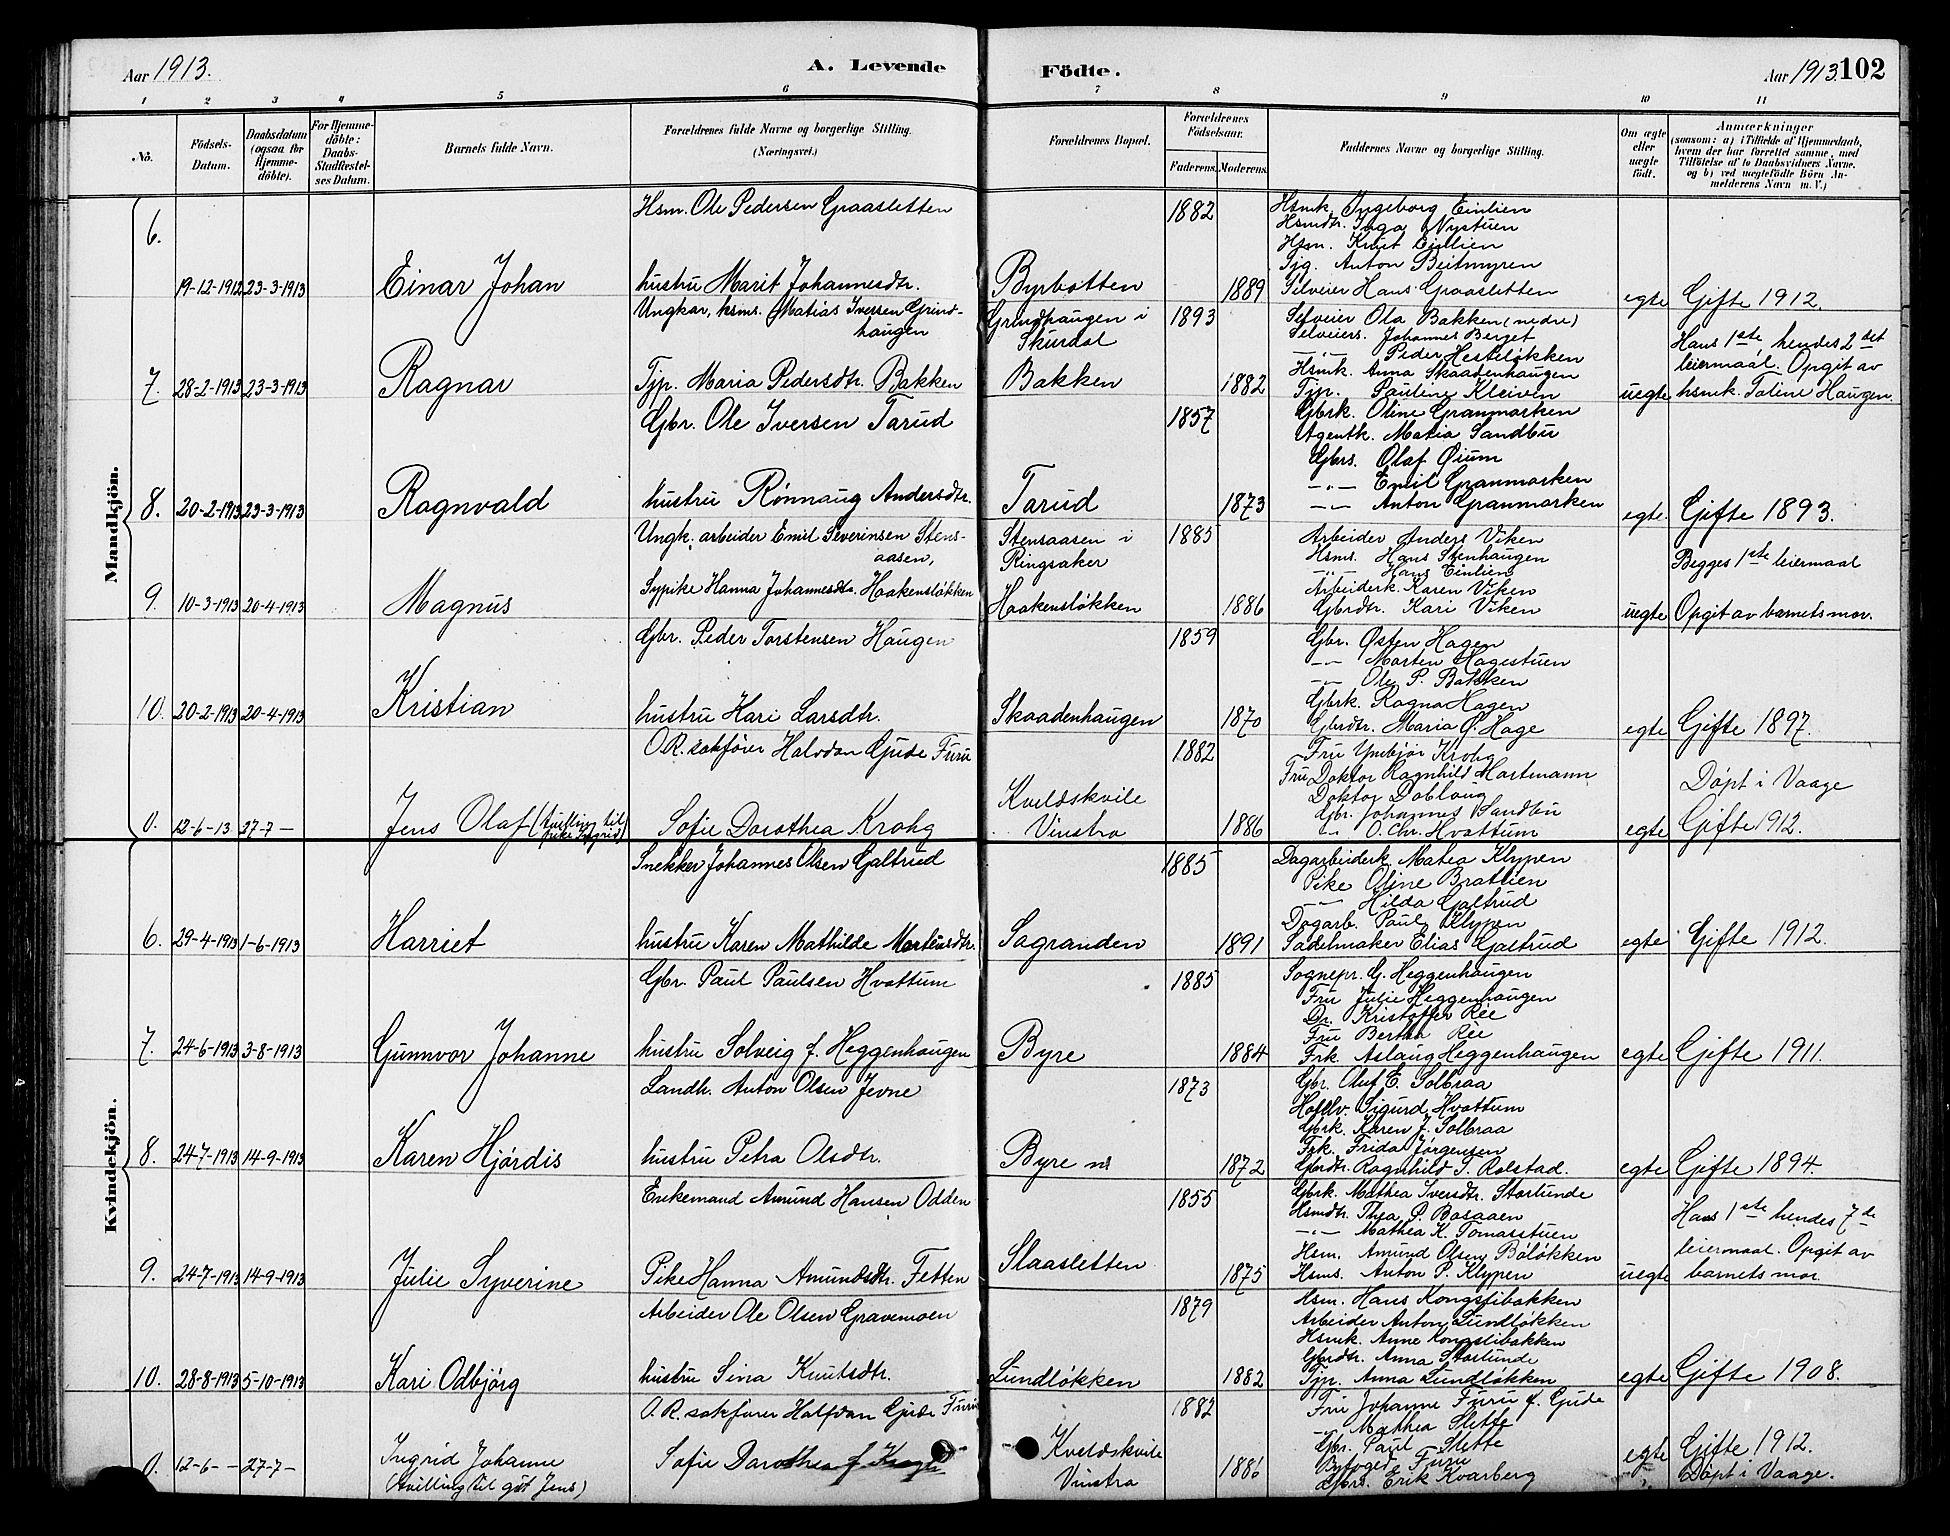 Aar 1913. A. Levende Födte. Aar 1913. 102
1 2 3 4 5 6 7 8 9 10 11
No.
Födsels-Datum.
Daabsdatum (ogsaa for Hjemme-döbte).
For Hjemme-döbte: Daabs-Stadfæstel-ses Datum.
Barnets fulde Navn.
Forældrenes fulde Navne og borgerlige Stilling.
(Næringsvei.)
Forældrenes Bopæl.
Forældrenes Födselsaar.
Faderens. Moderens.
Faddernes Navne og borgerlige Stilling.
Om ægte eller uægte födt.
Anmærkninger
(saasom: a) i Tilfælde af Hjemmedaab,
hvem der har forrettet samme, med
Tilföielse af to Daabsvidners Navne.
og b) ved uægtefödte Börn An-
melderens Navn m. V.)
Mandkjön.
6. 19-12-1912 23-3-1913 Einar Johan
Hsm. Ole Pedersen Graasletten
hustru Marit Johannesdtr.
Byrbotten
1882
1889
Hsmk. Ingeborg Einlien
Hsmdtr. Inga Nystuen
Hsm. Knut Einlien
Tjg. Anton Beitmyren
Selveier Hans Graasletten
egte Gifte 1912.
7. 28-2-1913 23-3-1913 Ragnar
Ungkar, hsms. Matias Iversen Grind-
haugen
Tjp. Maria Pedersdtr. Bakken
Grindhaugen i
Skurdal
Bakken
1893
1882
Selveier Ola Bakken (nedre)
Selveiers. Johannes Berget
—"— Peder Hesteløkken
Hsmk. Anna Skaadenhaugen
Tjp. Pauline Kleiven
uegte
Hans 1ste hendes 2det
leiermaal. Opgit av
hsmk. Taline Haugen.
8. 20-2-1913 23-3-1913 Ragnvald
Gbr. Ole Iversen Tarud
hustru Rønnaug Andersdtr.
Tarud
1857
1873
Gbrk. Oline Granmarken
Agentk. Matia Sandbu
Gbrs. Olaf Øium
—"— Emil Granmarken
—"— Anton Granmarken
egte. Gifte 1893.
9. 10-3-1913 20-4-1913 Magnus
Ungk. arbeider Emil Severinsen Stens-
aasen,
Sypike Hanna Johannesdtr. Haakensløkken
Stensaasen i
Ringsaker
Haakensløkken
1885
1886
Arbeider Anders Viken
Hsms. Hans Stenhaugen
—"— Hans Einlien
Arbeiderk. Karen Viken
Gbrdtr. Kari Viken
uegte
Begges 1ste leiermaal
Opgit av barnets mor.
10. 20-2-1913 20-4-1913 Kristian
Gbr. Peder Torstensen Haugen
hustru Kari Larsdtr.
Skaadenhaugen
1859
1870
Gbr. Østen Hagen
—"— Morten Hagestuen
—"— Ole P. Bakken
Gbrk. Ragna Hagen
Gbrdtr. Maria Ø. Hage
egte Gifte 1897.
0. 12-6-13 27-7 — Jens Olaf (tvilling til
pike Ingrid)
O.R. sakfører Halvdan Gjude Furu
Sofie Dorothea Krohg
Kveldskvile
Vinstra
1882
1886
Fru Krohg
Fru Doktor Ragnhild Hartmann
Doktor Dobloug
Gbr. Johannes Sandbu
—"— O. Chr. Hvattum
egte
Døpt i Vaage
Gifte 1912.
Kvindekjön.
6. 29-4-1913 1-6-1913 Harriet
Snekker Johannes Olsen Galtrud
hustru Karen Mathilde Mortensdtr.
Sagranden
1885
1891
Dagarbeiderk. Matea Klypen
Pike Oline Bratlien
—"— Hilda Galtrud
Dagarb. Paul Klypen
Sadelmaker Elias Galtrud
egte Gifte 1912.
7. 24-6-1913 3-8-1913 Gunnvor Johanne
Gbr. Paul Paulsen Hvattum
hustru Solveig f. Heggenhaugen
Byre
1885
1884
Sognepr. G. Heggenhaugen
Fru Julie Heggenhaugen
Dr. Kristoffer Rée
Fru Bertha Rée
Frk. Aslaug Heggenhaugen
egte Gifte 1911.
8. 24-7-1913 14-9-1913 Karen Hjördis
Landh. Anton Olsen Jevne
hustru Petra Olsdtr.
Byre
1873
1872
Gbr. Oluf E. Solbraa
Sigurd Hvattum
Gbrk. Karen J. Solbraa
Frk. Frida Jørgensen
Gbrdtr. Ragnhild T. Rolstad.
egte Gifte 1894.
9. 24-7-1913 14-9-1913 Julie Syverine
Enkemand Amund Hansen Odden
Pike Hanna Amundsdtr. Fetten
Slaasletten
1855
1875
Gbrk. Mathea Iversdtr. Storlunde
Hsmdtr. Thea P. Basaaen
—"— Mathea K. Tomasstuen
Hsm. Amund Olsen Böløkken
Hsms. Anton P. Klypen
uegte
Hans 1ste hendes 7de
leiermaal. Opgit av
barnets mor.
10. 28-8-1913 5-10-1913 Kari Odbjörg
Arbeider Ole Olsen Gravemoen
hustru Sina Knutsdtr.
Lundløkken
1879
1882
Hsm. Hans Kongslibakken
Arbeider Anton Lundløkken
Hsmk. Anne Kongslibakken
Gbrdtr. Anna Storlunde
Tjp. Anna Lundløkken
egte Gifte 1908.
0. 12-6- — 27-7 — Ingrid Johanne
(tvilling til gut Jens)
O.R. sakfører Halfdan Gjude Furu
Sofie Dorothea f. Krogh
Kveldskvile
Vinstra
1882
1886
Fru Johanne Furu f. Gjude
—"— Mathea Slette
Gbr. Paul Slette
Byfoged Furu
Gbrs. Erik Kvarberg
egte
Gifte 1912.
Døpt i Vaage.